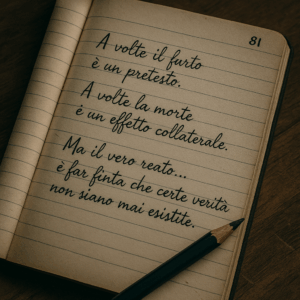 81
A volte il furto
è un pretesto.
A volte la morte
è un effetto collaterale.
Ma il vero reato...
è far finta che certe verità
non siano mai esistite.